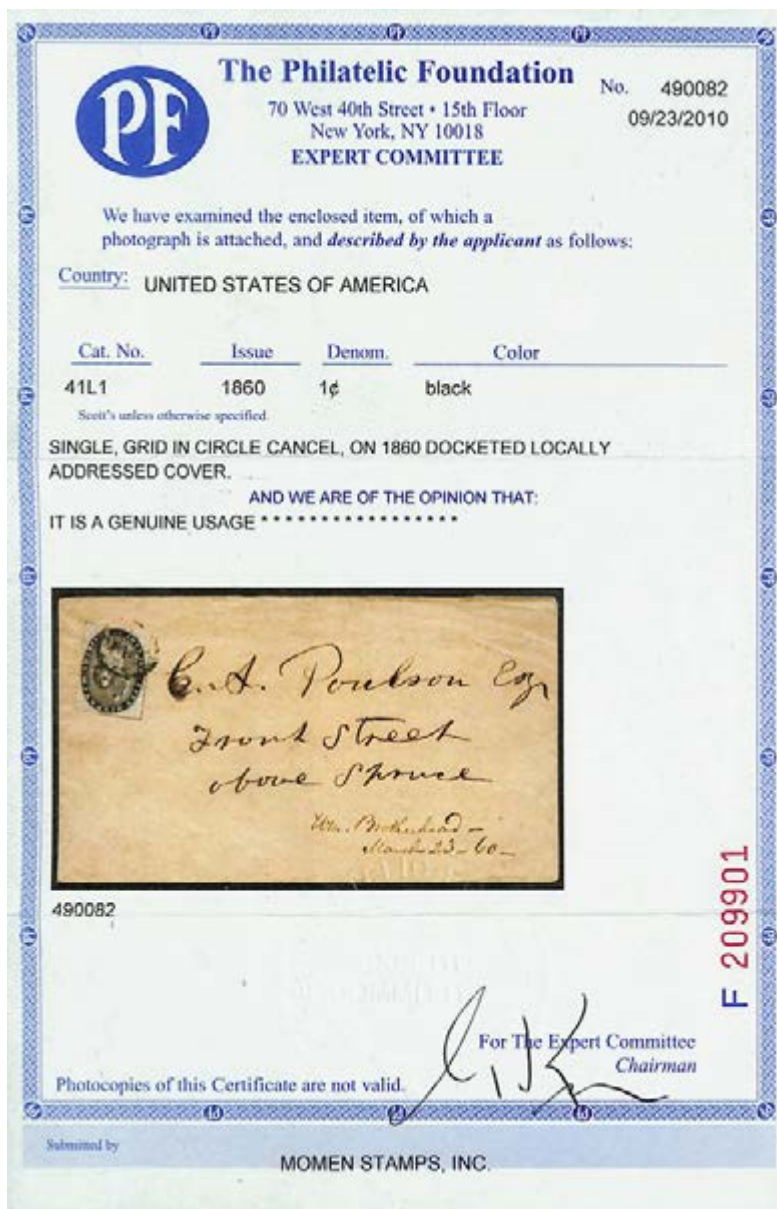 PF
The Philatelic Foundation
70 West 40th Street • 15th Floor
New York, NY 10018
EXPERT COMMITTEE
No. 490082
09/23/2010
We have examined the enclosed item, of which a
photograph is attached, and described by the applicant as follows:
Country: UNITED STATES OF AMERICA
Cat. No. Issue Denom. Color
41L1 1860 1¢ black
Scott's unless otherwise specified.
SINGLE, GRID IN CIRCLE CANCEL, ON 1860 DOCKETED LOCALLY
ADDRESSED COVER.
AND WE ARE OF THE OPINION THAT:
IT IS A GENUINE USAGE * * * * * * * * * * * * * * * * *
C. A. Poulson Esq
Front Street
above Spruce
Wm. Brotherhead -
March 23 - 60 -
490082
F 209901
For The Expert Committee
Chairman
Photocopies of this Certificate are not valid.
Submitted by
MOMEN STAMPS, INC.